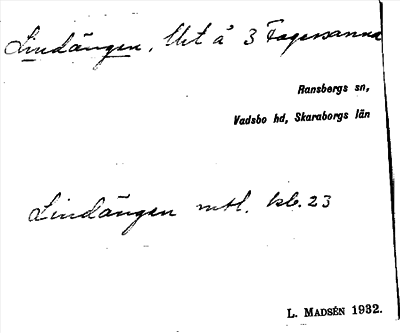 Lindängen, Utå 3 Fagersanna
Ransbergs sn,
Vadsbo hd, Skaraborgs län
Lindängen mtl. kb. 23
L. MADSÉN 1932.